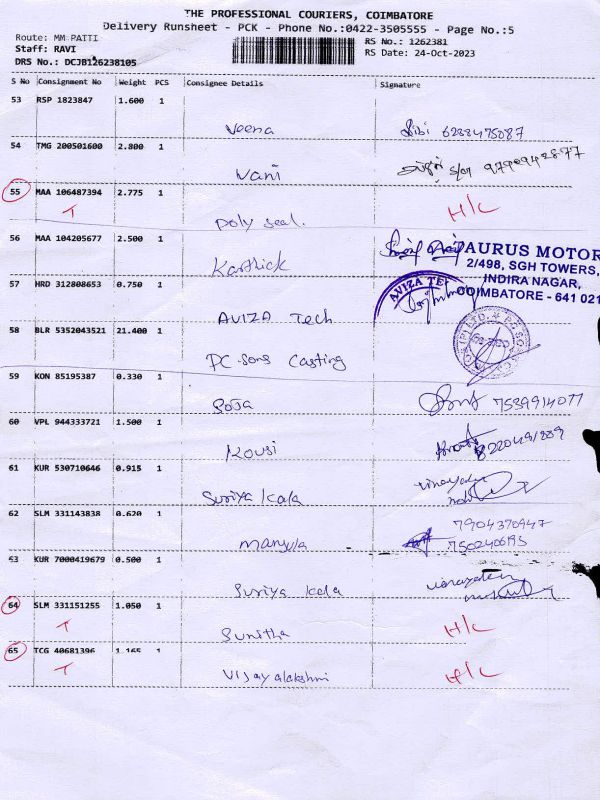 THE PROFESSIONAL COURIERS, COIMBATORE
Delivery Runsheet - PCK - Phone No.:0422-3505555 - Page No.:5
Route: MM PATTI
RS No.: 1262381
Staff: RAVI
RS Date: 24-Oct-2023
DRS No.: DCJB126238105
S No Consignment No Weight PCS Consignee Details Signature
53 RSP 1823847 1.600 1
Veena Sibi 6288475087
54 TMG 200501600 2.800 1
Vani S/o 9790942877
55 MAA 106487394 2.775 1
T Poly Seal. H/C
56 MAA 104205677 2.500 1
Karthick
AURUS MOTOR
2/498, SGH TOWERS,
INDIRA NAGAR,
COIMBATORE - 641 021
57 HRD 312808653 0.750 1
AVIZA TE
AVIZA Tech
58 BLR 5352043521 21.400 1
PC-Sons Casting
59 KON 85195387 0.330 1
Roja 7539914077
60 VPL 944333721 1.500 1
Kousi
61 KUR 530710646 0.915 1
Suriya Kala
62 SLM 331143838 0.620 1
7904370947
Manjula 7502406193
63 KUR 7000419679 0.500 1
Suriya Kala
64 SLM 331151255 1.050 1
T Sunitha H/C
65 TCG 40681396 1.165 1
T Vijayalakshmi H/C